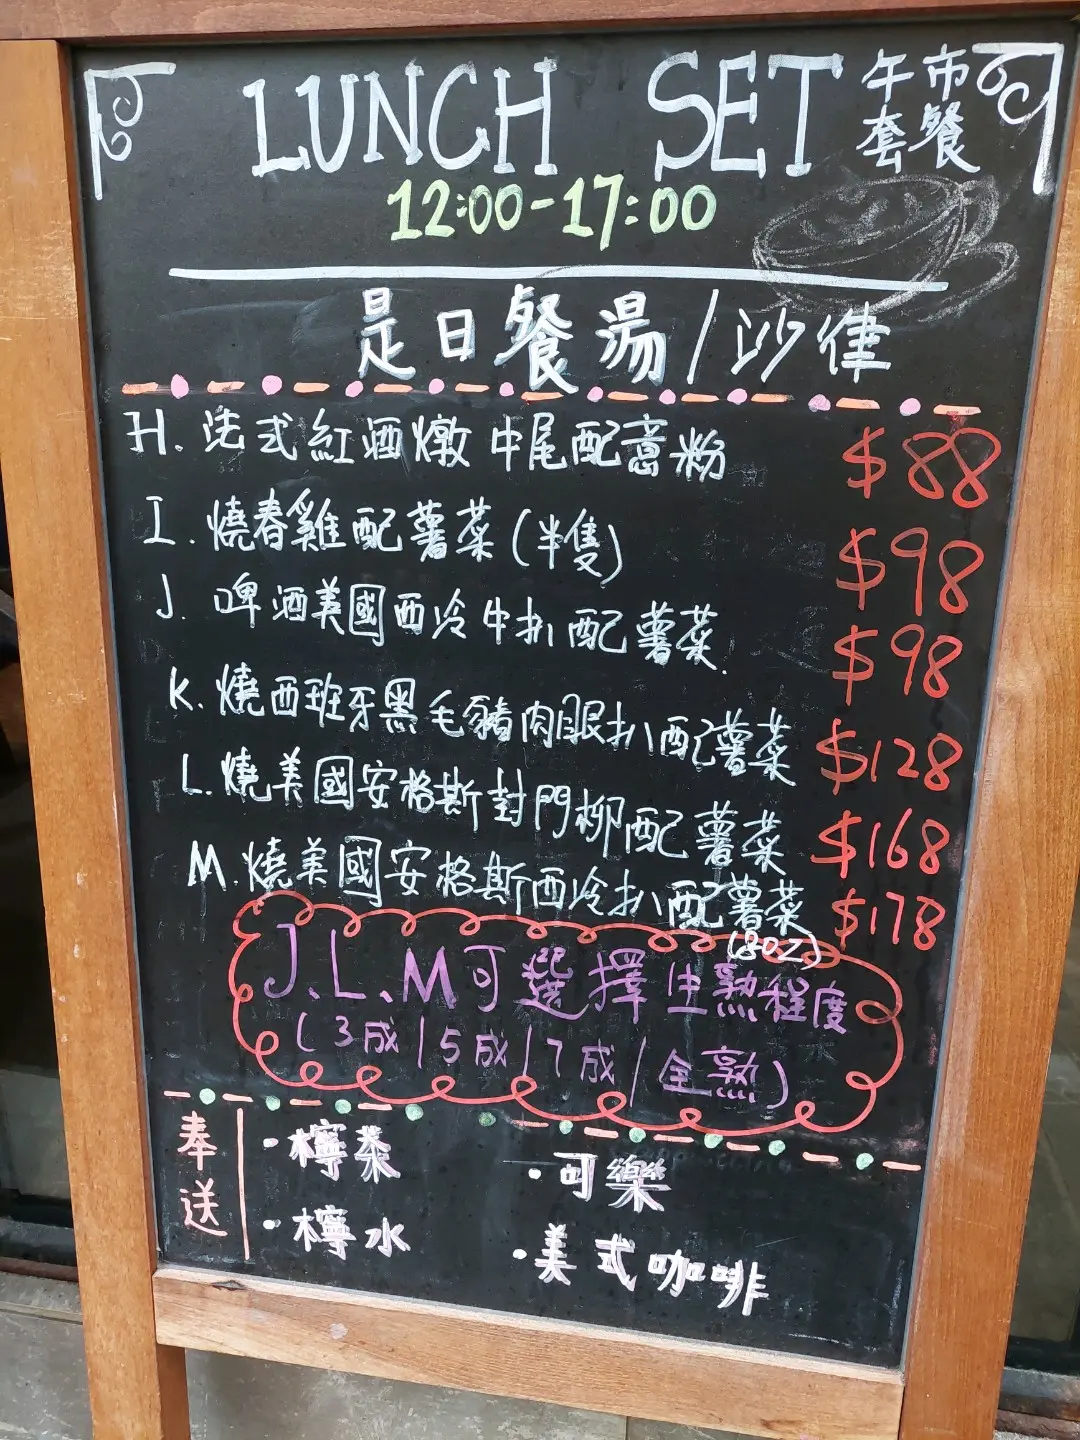 LUNCH SET 午市套餐
12:00-17:00
是日餐湯/沙律
H. 法式紅酒燉牛尾配意粉 $88
I. 燒春雞配薯菜(半隻) $98
J. 啤酒美國西冷牛扒配薯菜 $98
K. 燒西班牙黑毛豬肉眼扒配薯菜 $128
L. 燒美國安格斯封門柳配薯菜 $168
M. 燒美國安格斯西冷扒配薯菜 $178
(8OZ)
J、L、M可選擇生熟程度
(3成/5成/7成/全熟)
奉送
·檸茶 ·可樂
·檸水 ·美式咖啡